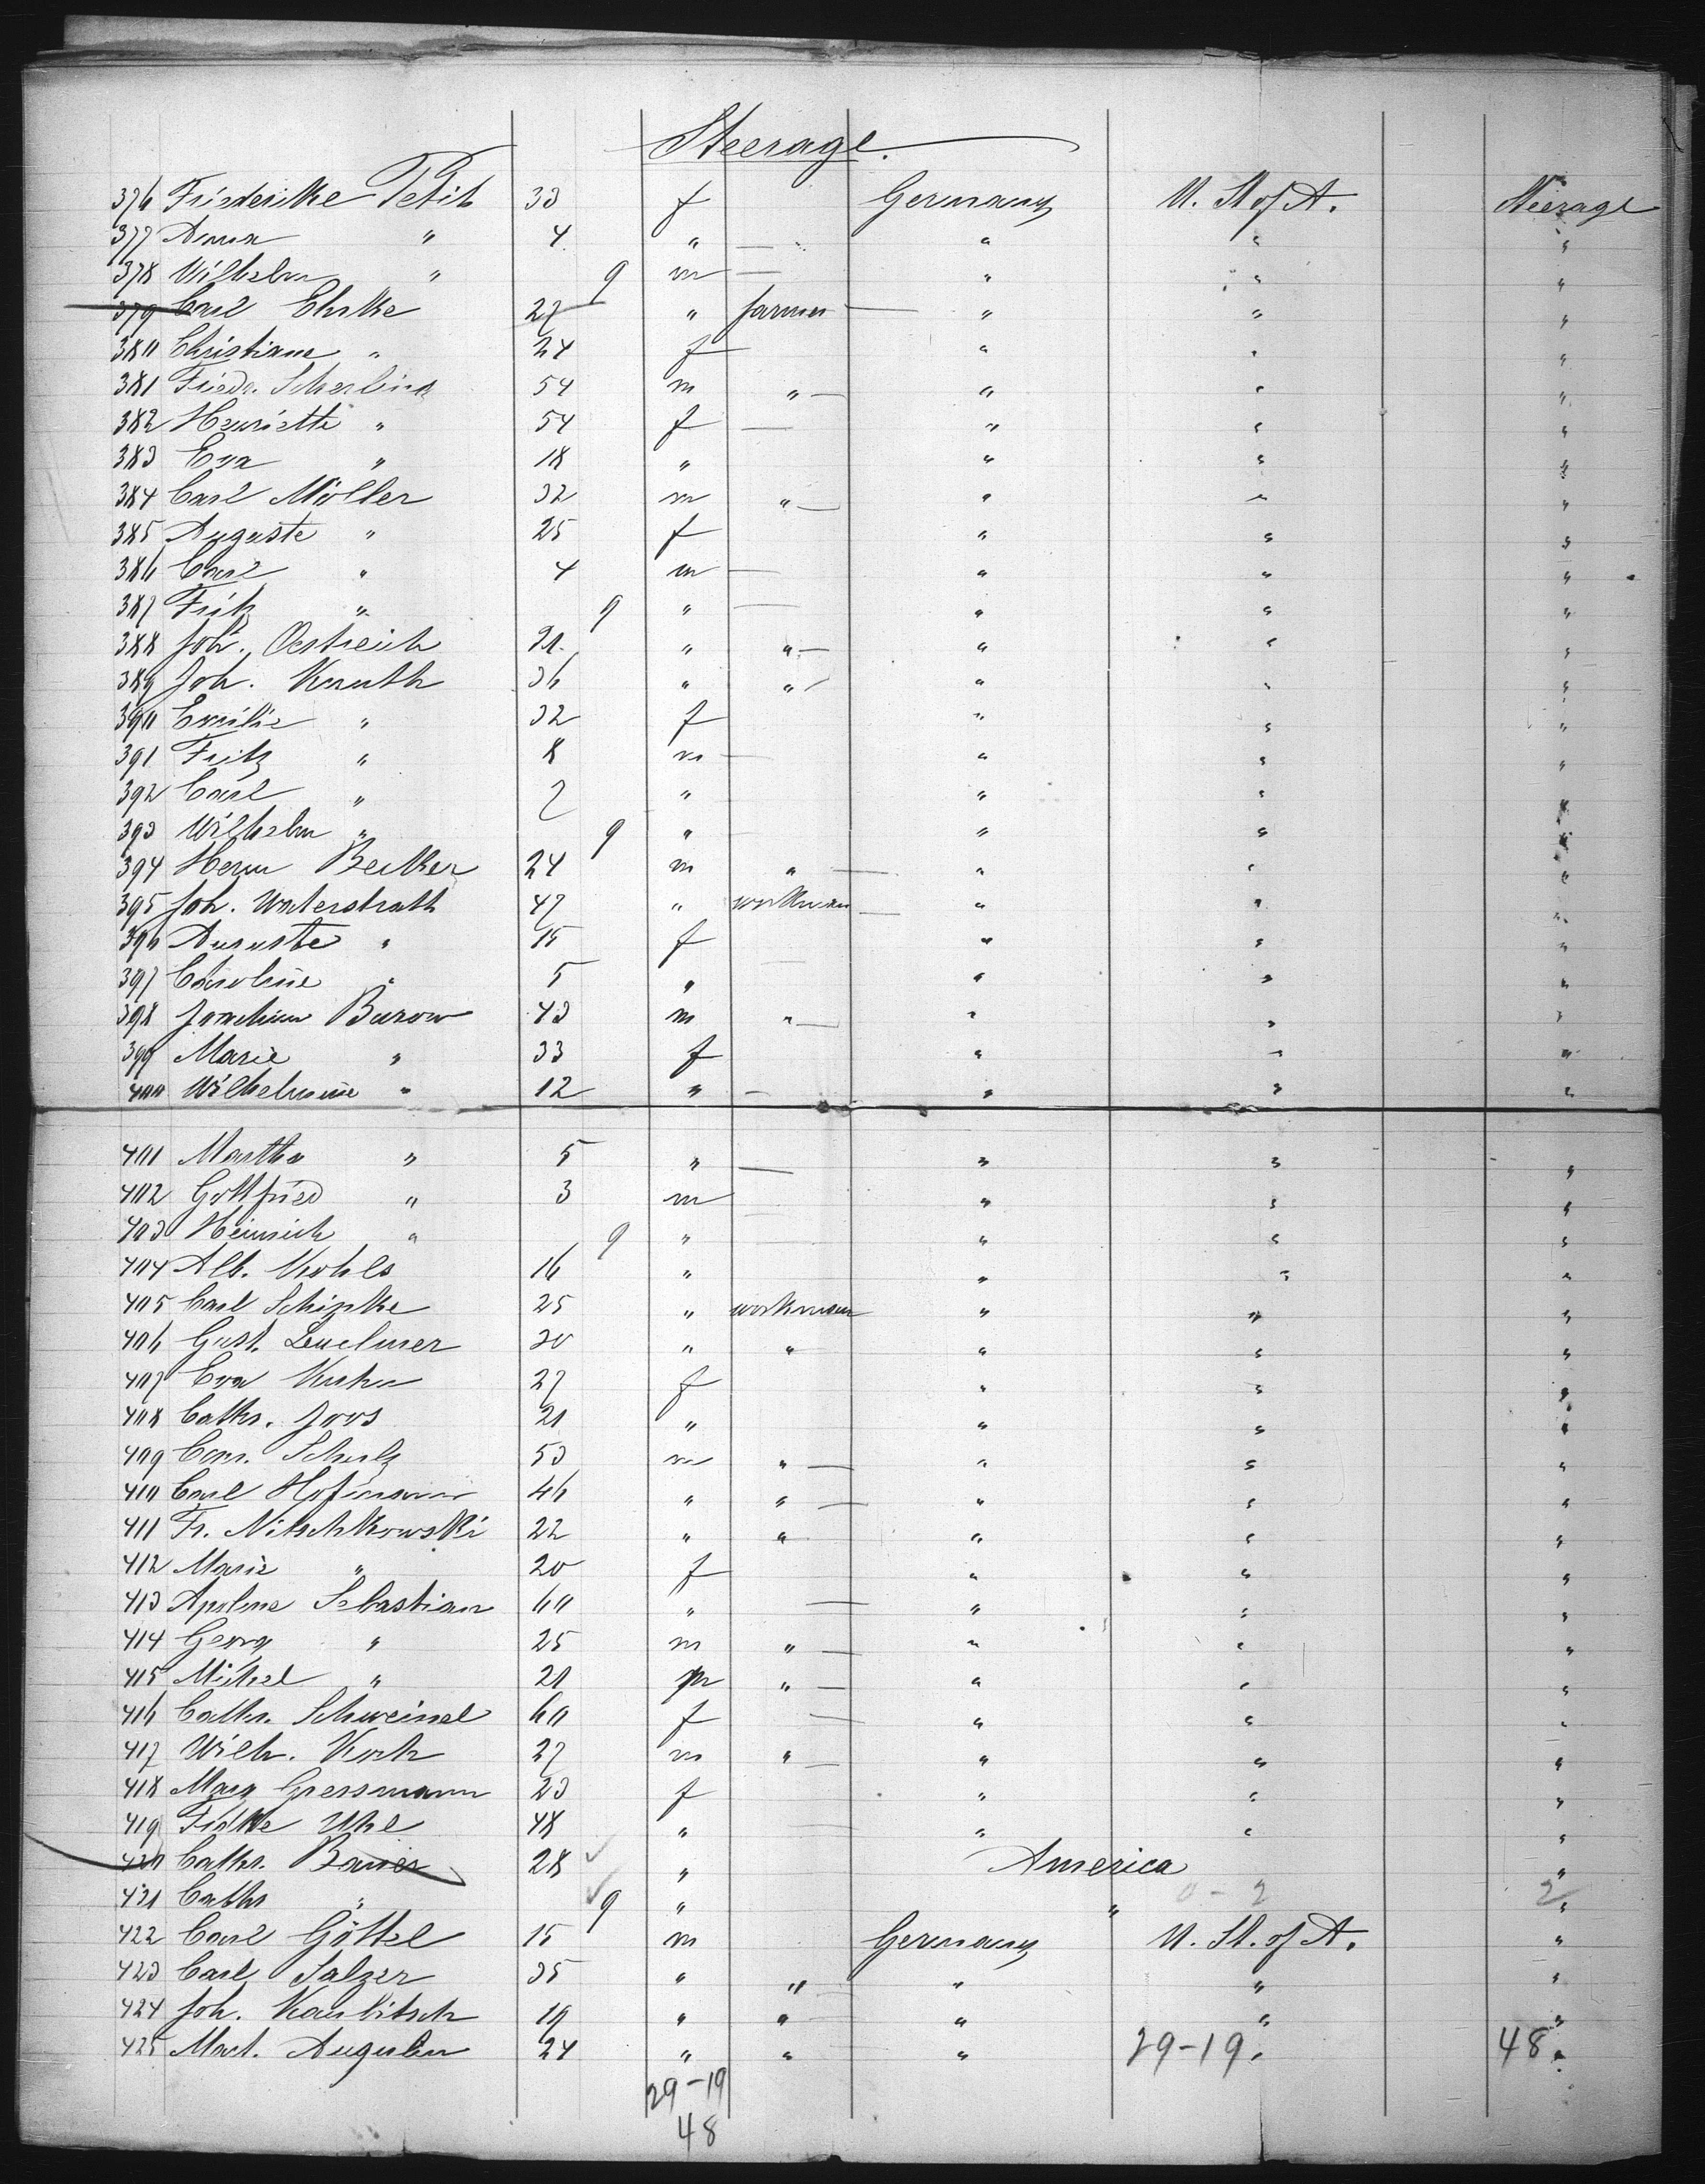 Steerage.
376 Friederike Petit 33 f Germany U. St of A. Steerage
377 Anna " 4 " — " " "
378 Wilhelm " 9 m — " " "
379 Carl Ehlke 27 " farmer — " " "
380 Christiane " 24 f — " " "
381 Friedr. Scherling 54 m " — " " "
382 Henriette " 54 f — " " "
383 Eva " 18 " " " "
384 Carl Möller 32 m " — " " "
385 Auguste " 25 f " " "
386 Carl " 4 m — " " "
387 Fritz " 9 " — " " "
388 Joh. Oestreich 21 " " — " " "
389 Joh. Knuth 36 " " — " " "
390 Emilie " 32 f " " "
391 Fritz " 8 m — " " "
392 Carl " 2 " " " "
393 Wilhelm " 9 " — " " "
394 Herm Becker 24 m " — " " "
395 Joh. Waterstrath 47 " workman — " " "
396 Auguste " 15 f " " "
397 Caroline " 5 " — " " "
398 Joachim Burow 43 m " — " " "
399 Marie " 33 f " " "
400 Wilhelmine " 12 " — " " "
401 Martha " 5 " — " " "
402 Gottfried " 3 m " " "
403 Heinrich " 9 " — " " "
404 Alb. Kohls 16 " " " "
405 Carl Schipke 25 " workman " " "
406 Gust. 20 " " " " "
407 Eva Kuhn 27 f " " "
408 Cathr. Joos 21 " " " "
409 Schulz 53 m " — " " "
410 Carl Hofmann 46 " " — " " "
411 Fr. Nitschkowski 22 " " " " "
412 Marie " 20 f " " "
413 Apolone Sebastian 60 " — " " "
414 Georg " 25 m " — " " "
415 Michel " 21 m " — " " "
416 Cathr. Schweissel 60 f — " " "
417 Wilh. Koch 27 m " — " " "
418 Marg Gressmann 23 f " " "
419 Uhl 48 " — " " "
420 Cathr. Bauer 28 " America "
421 Cathr " 9 " " 0-2 2 "
422 Carl Göttel 15 m Germany U. St. of A. "
423 Carl Salzer 35 " " " " "
424 Joh. Kaulitsch 19 " " " " "
425 Mart. Augustin 24 " " " 29-19 " 48 "
29-19
48